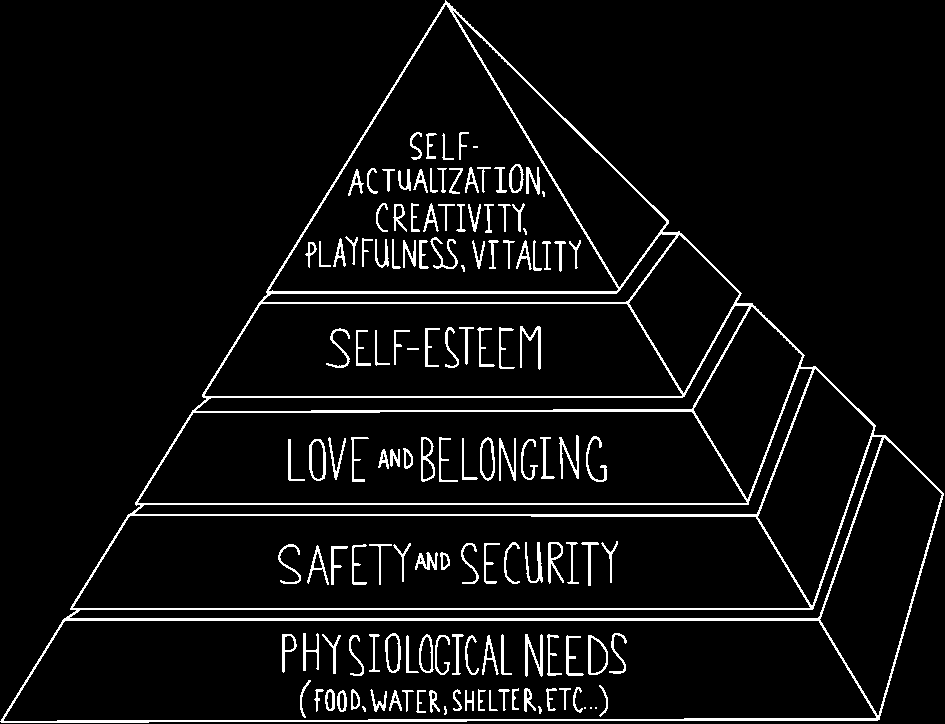 SELF-
ACTUALIZATION,
CREATIVITY,
PLAYFULNESS, VITALITY
SELF-ESTEEM
LOVE AND BELONGING
SAFETY AND SECURITY
PHYSIOLOGICAL NEEDS
(FOOD, WATER, SHELTER, ETC...)